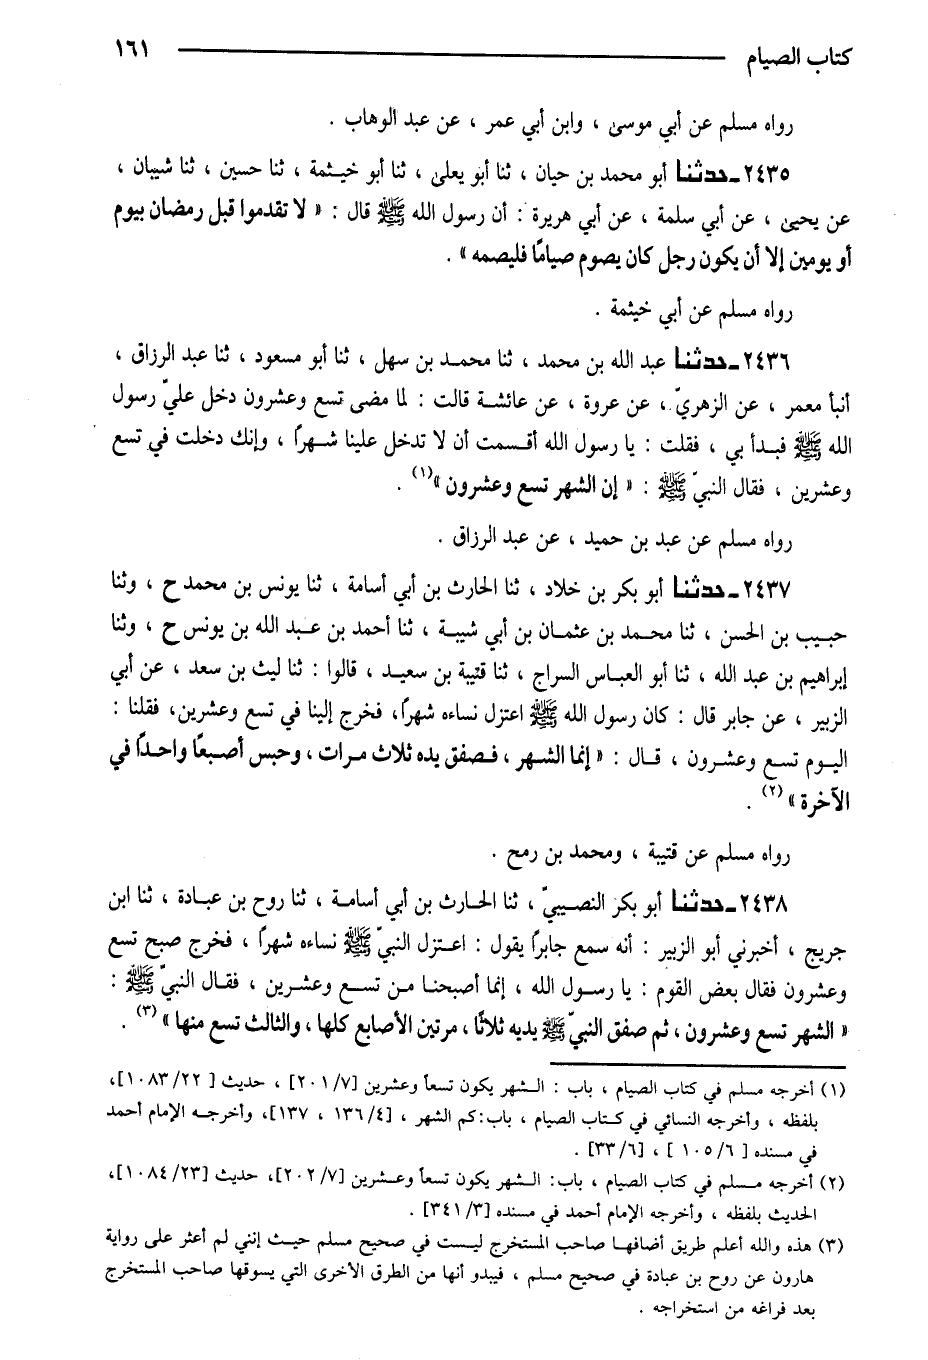 كتاب الصيام ١٦١
رواه مسلم عن أبي موسىٰ ، وابن أبي عمر ، عن عبد الوهاب .
٢٤٣٥ـ حدثنا أبو محمد بن حيان ، ثنا أبو يعلىٰ ، ثنا أبو خيثمة ، ثنا حسين ، ثنا شيبان ،
عن يحيىٰ ، عن أبي سلمة ، عن أبي هريرة : أن رسول الله ﷺ قال : « لا تقدموا قبل رمضان بيوم
أو يومين إلا أن يكون رجل كان يصوم صيامًا فليصمه » .
رواه مسلم عن أبي خيثمة .
٢٤٣٦ـ حدثنا عبد الله بن محمد ، ثنا محمد بن سهل ، ثنا أبو مسعود ، ثنا عبد الرزاق ،
أنبأ معمر ، عن الزهريّ ، عن عروة ، عن عائشة قالت : لما مضى تسع وعشرون دخل عليّ رسول
الله ﷺ فبدأ بي ، فقلت : يا رسول الله أقسمت أن لا تدخل علينا شهرًا ، وإنك دخلت في تسع
وعشرين ، فقال النبيّ ﷺ : « إن الشهر تسع وعشرون »(١) .
رواه مسلم عن عبد بن حميد ، عن عبد الرزاق .
٢٤٣٧ـ حدثنا أبو بكر بن خلاد ، ثنا الحارث بن أبي أسامة ، ثنا يونس بن محمد ح ، وثنا
حبيب بن الحسن ، ثنا محمد بن عثمان بن أبي شيبة ، ثنا أحمد بن عبد الله بن يونس ح ، وثنا
إبراهيم بن عبد الله ، ثنا أبو العباس السراج ، ثنا قتيبة بن سعيد ، قالوا : ثنا ليث بن سعد ، عن أبي
الزبير ، عن جابر قال : كان رسول الله ﷺ اعتزل نساءه شهرًا، فخرج إلينا في تسع وعشرين، فقلنا :
اليوم تسع وعشرون ، قال : « إنما الشهر ، فصفق يده ثلاث مرات ، وحبس أصبعًا واحدًا في
الآخرة »(٢) .
رواه مسلم عن قتيبة ، ومحمد بن رمح .
٢٤٣٨ـ حدثنا أبو بكر النصيبيّ ، ثنا الحارث بن أبي أسامة ، ثنا روح بن عبادة ، ثنا ابن
جريج ، أخبرني أبو الزبير : أنه سمع جابرًا يقول : اعتزل النبيّ ﷺ نساءه شهرًا ، فخرج صبح تسع
وعشرون فقال بعض القوم : يا رسول الله ، إنما أصبحنا من تسع وعشرين ، فقال النبيّ ﷺ :
« الشهر تسع وعشرون ، ثم صفق النبيّ ﷺ يديه ثلاثًا ، مرتين الأصابع كلها ، والثالث تسع منها »(٣) .
(١) أخرجه مسلم في كتاب الصيام ، باب : الشهر يكون تسعاً وعشرين [٢٠١/٧] ، حديث [ ١٠٨٣/٢٢]،
بلفظه ، وأخرجه النسائي في كتاب الصيام ، باب: كم الشهر ، [١٣٦/٤ ، ١٣٧]، وأخرجه الإمام أحمد
في مسنده [ ١٠٥/٦ ] ، [٣٣/٦] .
(٢) أخرجه مسلم في كتاب الصيام ، باب: الشهر يكون تسعاً وعشرين [٢٠٢/٧]، حديث [١٠٨٤/٢٣]،
الحديث بلفظه ، وأخرجه الإمام أحمد في مسنده [٣٤١/٣] .
(٣) هذه والله أعلم طريق أضافها صاحب المستخرج ليست في صحيح مسلم حيث إنني لم أعثر على رواية
هارون عن روح بن عبادة في صحيح مسلم ، فيبدو أنها من الطرق الأخرى التي يسوقها صاحب المستخرج
بعد فراغه من استخراجه .